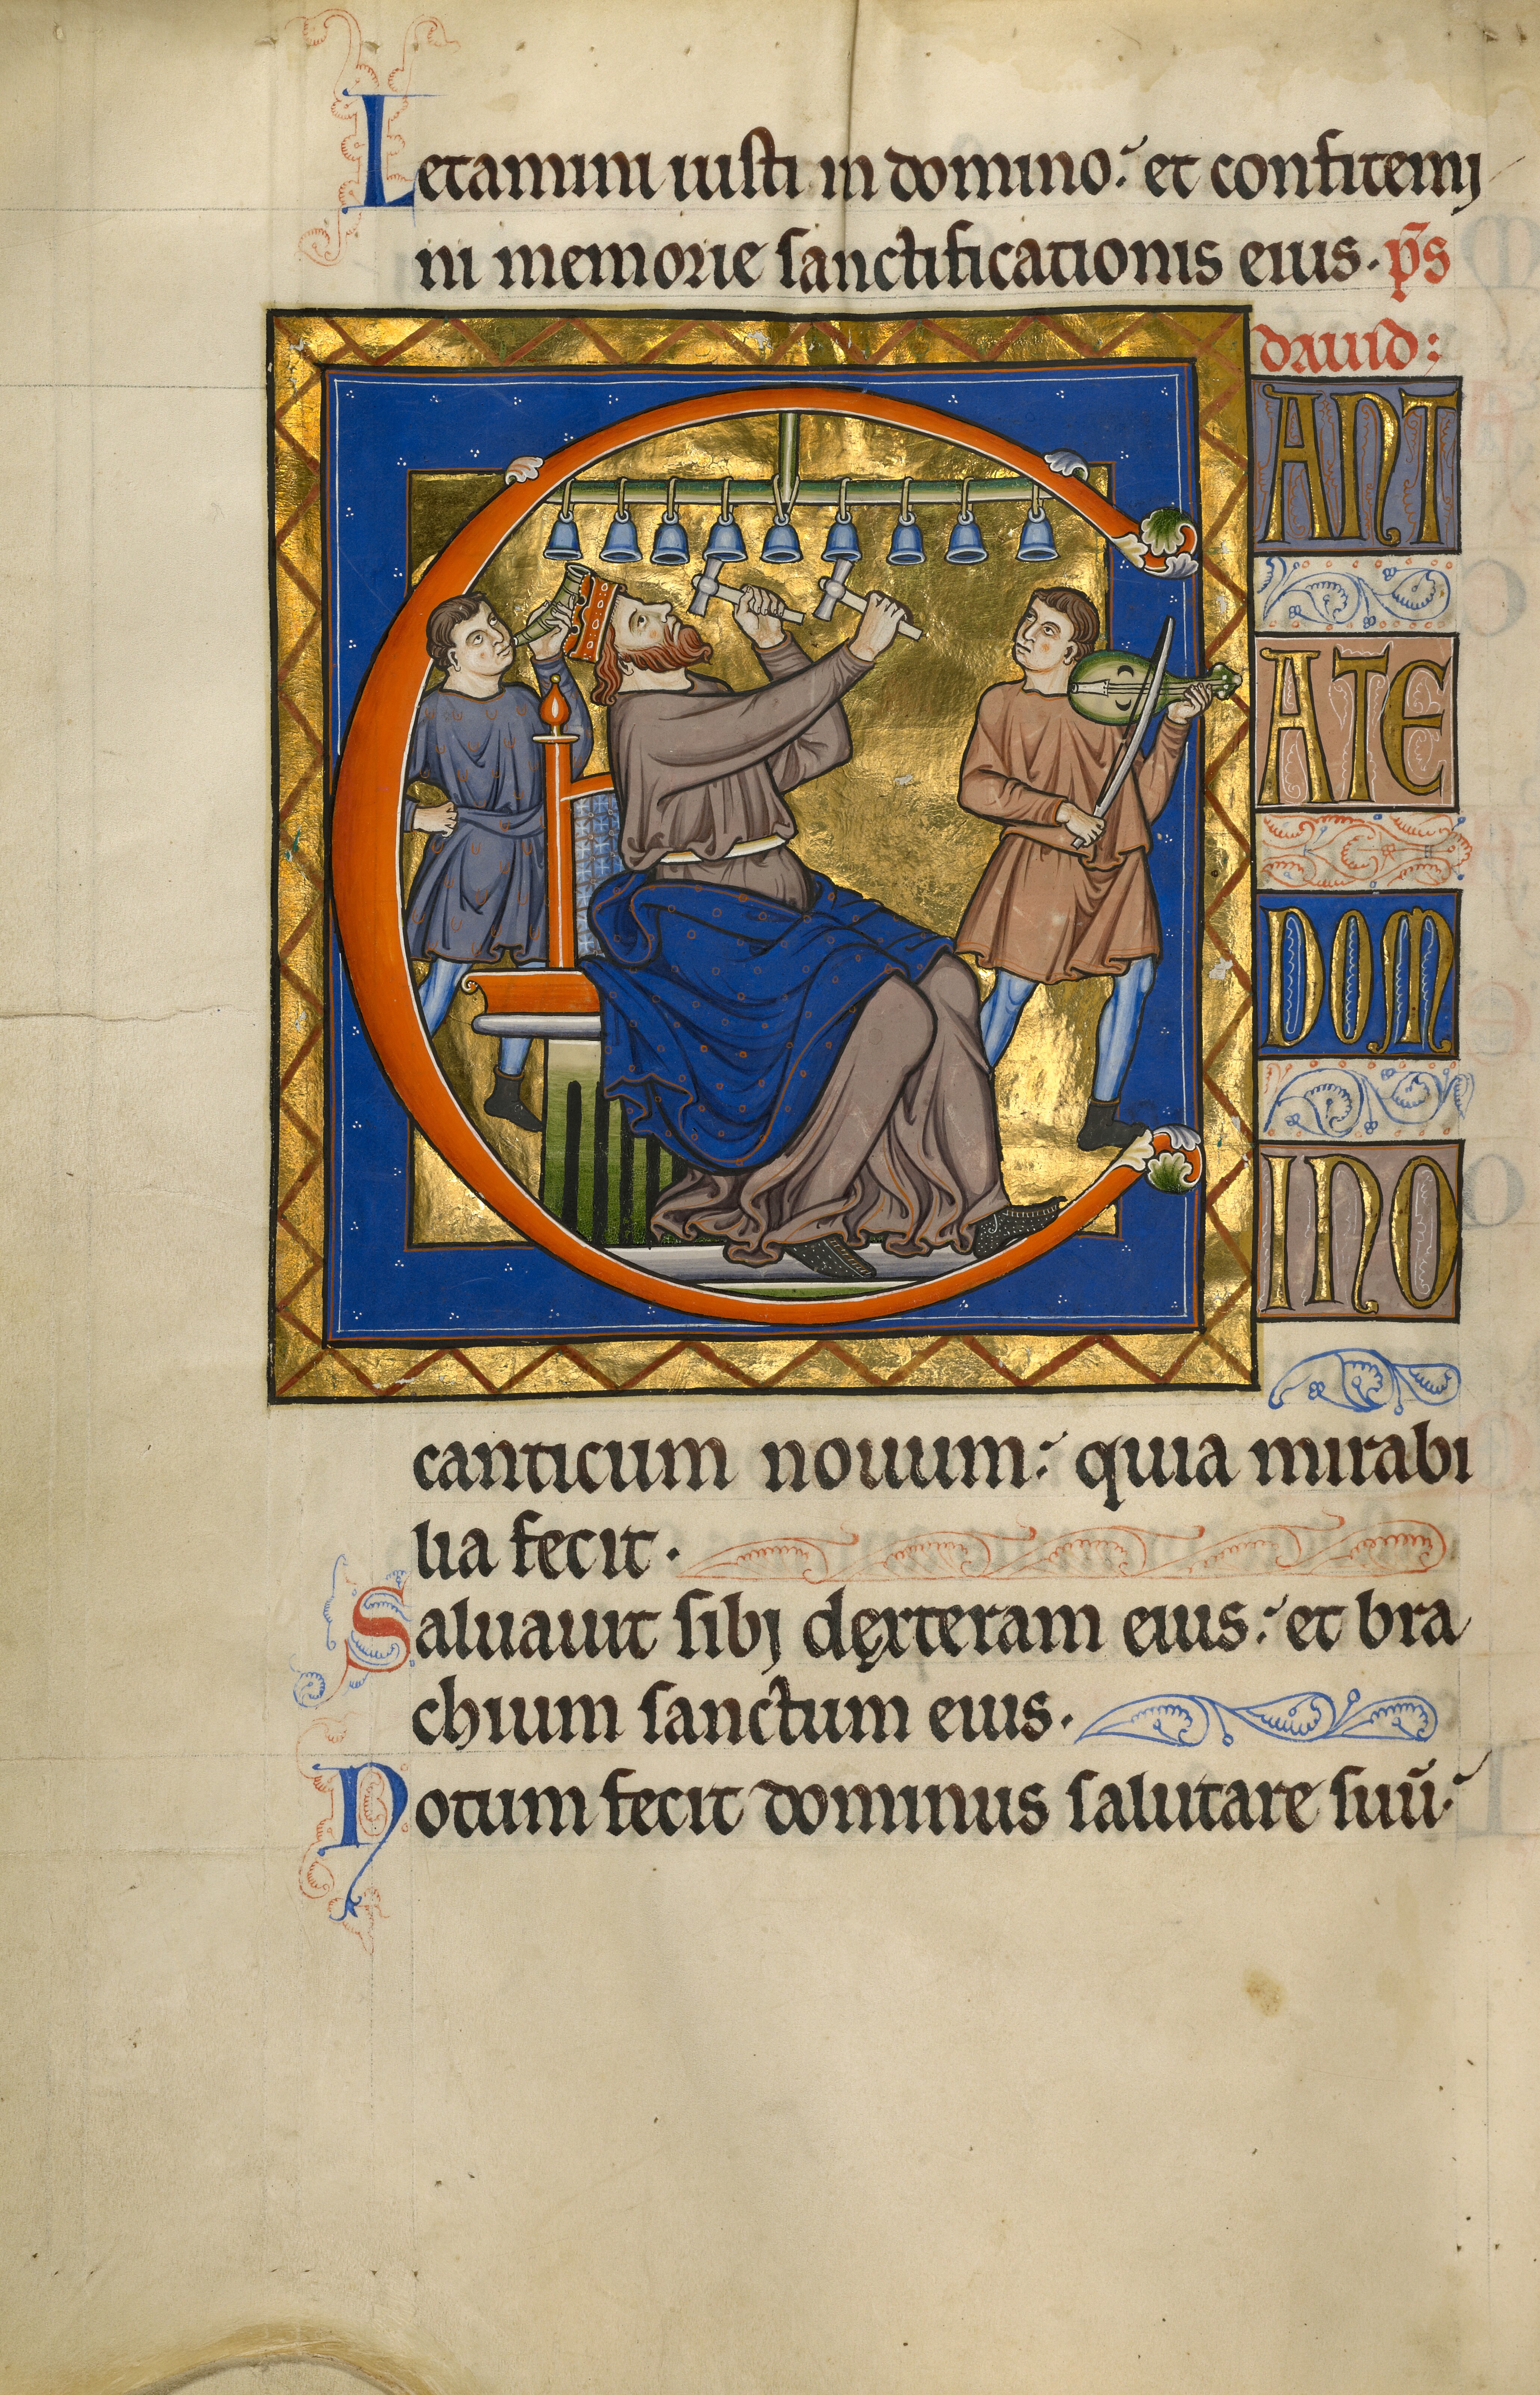 Letamini iusti in domino: et confitemj
ni memorie sanctificationis eius. p̄s
dauid:
C
ANT
ATE
DOM
INO
canticum nouum: quia mirabi
lia fecit.
Saluauit sibj dęxteram eius: et bra
chium sanctum eius.
Notum fecit dominus salutare suū: